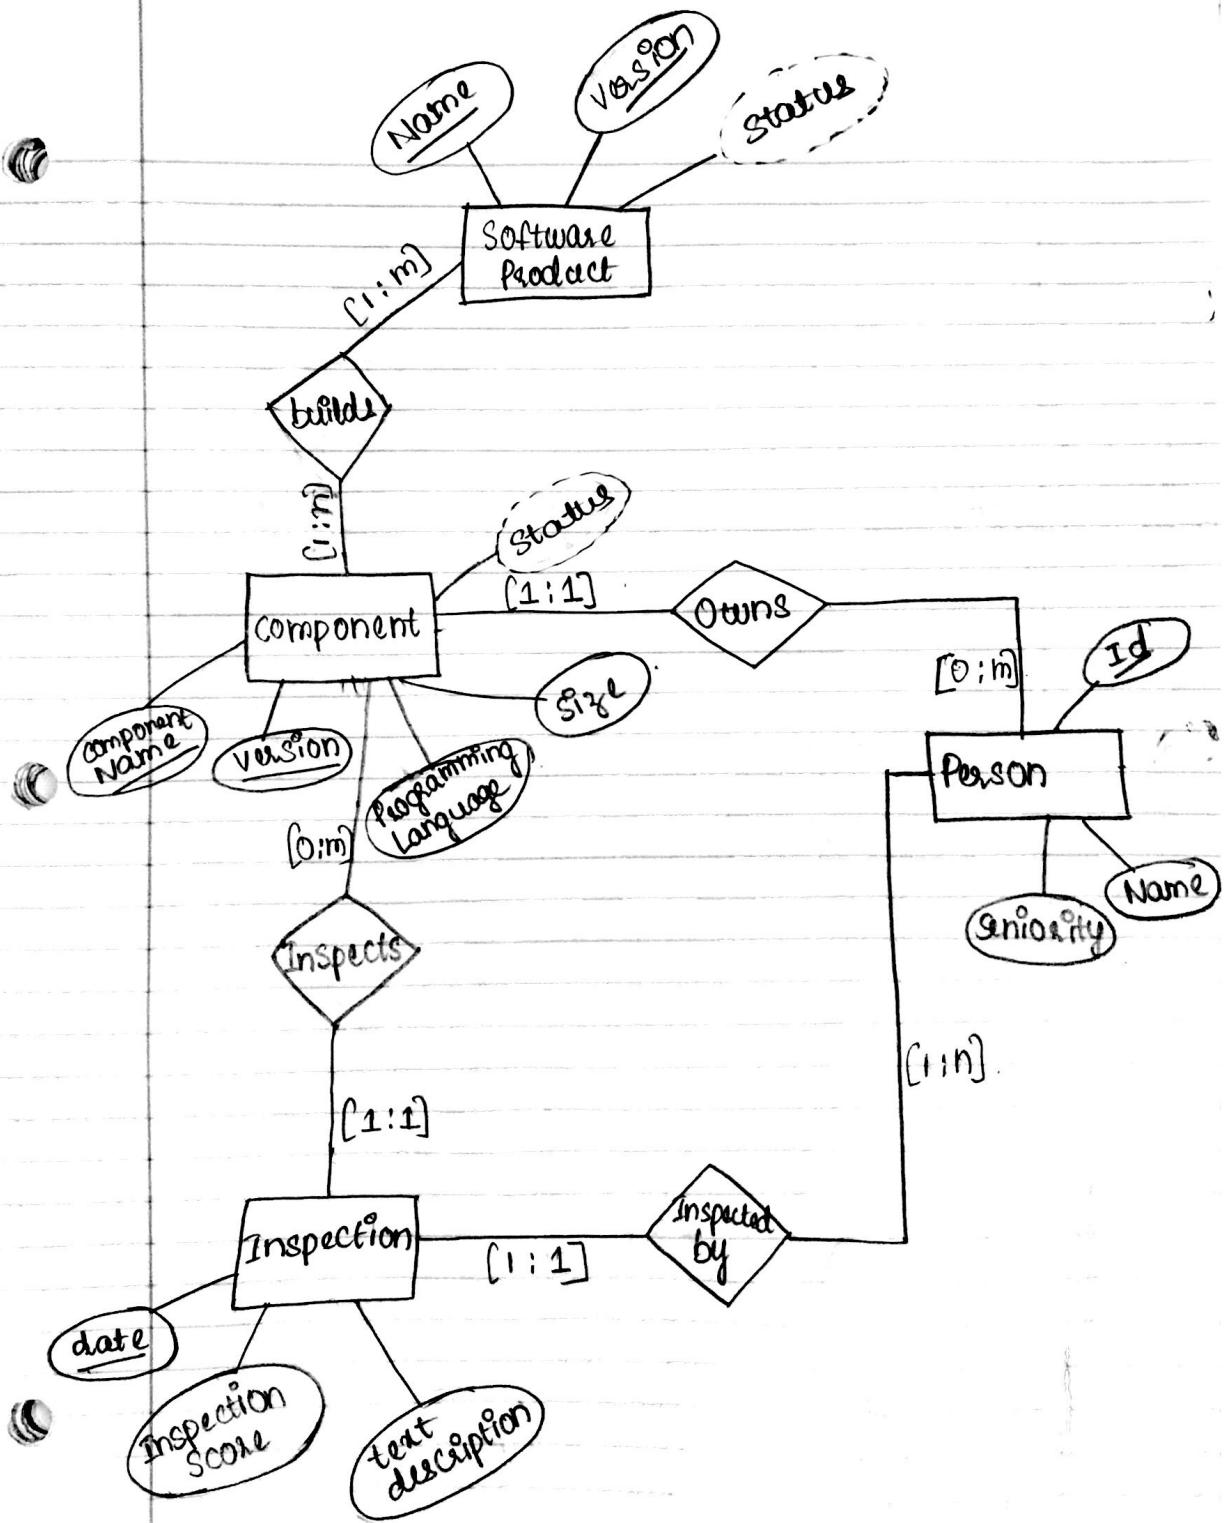 Name
Version
Status
Software
Product
[1:m]
builds
[1:n]
Status
Component
[1:1]
Owns
[0:m]
Id
Component
Name
Version
Programming
Language
Size
Person
Seniority
Name
[0:m]
Inspects
[1:1]
[1:n]
Inspection
[1:1]
Inspected
by
date
Inspection
Score
text
description